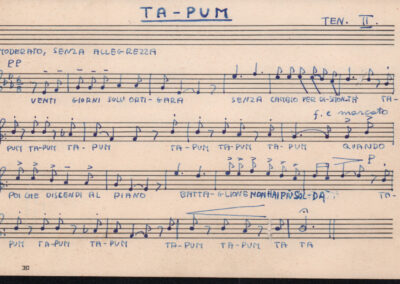 TA-PUM
TEN. II.
MODERATO, SENZA ALLEGREZZA
PP
VENTI GIORNI SULL'ORTI-GARA SENZA CAMBIO PER DI-SMONTÀ TA-
f. e marcato
PUM TA-PUM TA-PUM TA-PUM TA-PUM TA-PUM QUANDO
P
POI CHE DISCENDI AL PIANO BATTA-GLIONE NON HAI PIÙ SOL-DÀ TA-
PUM TA-PUM TA-PUM TA-PUM TA-PUM TA TA